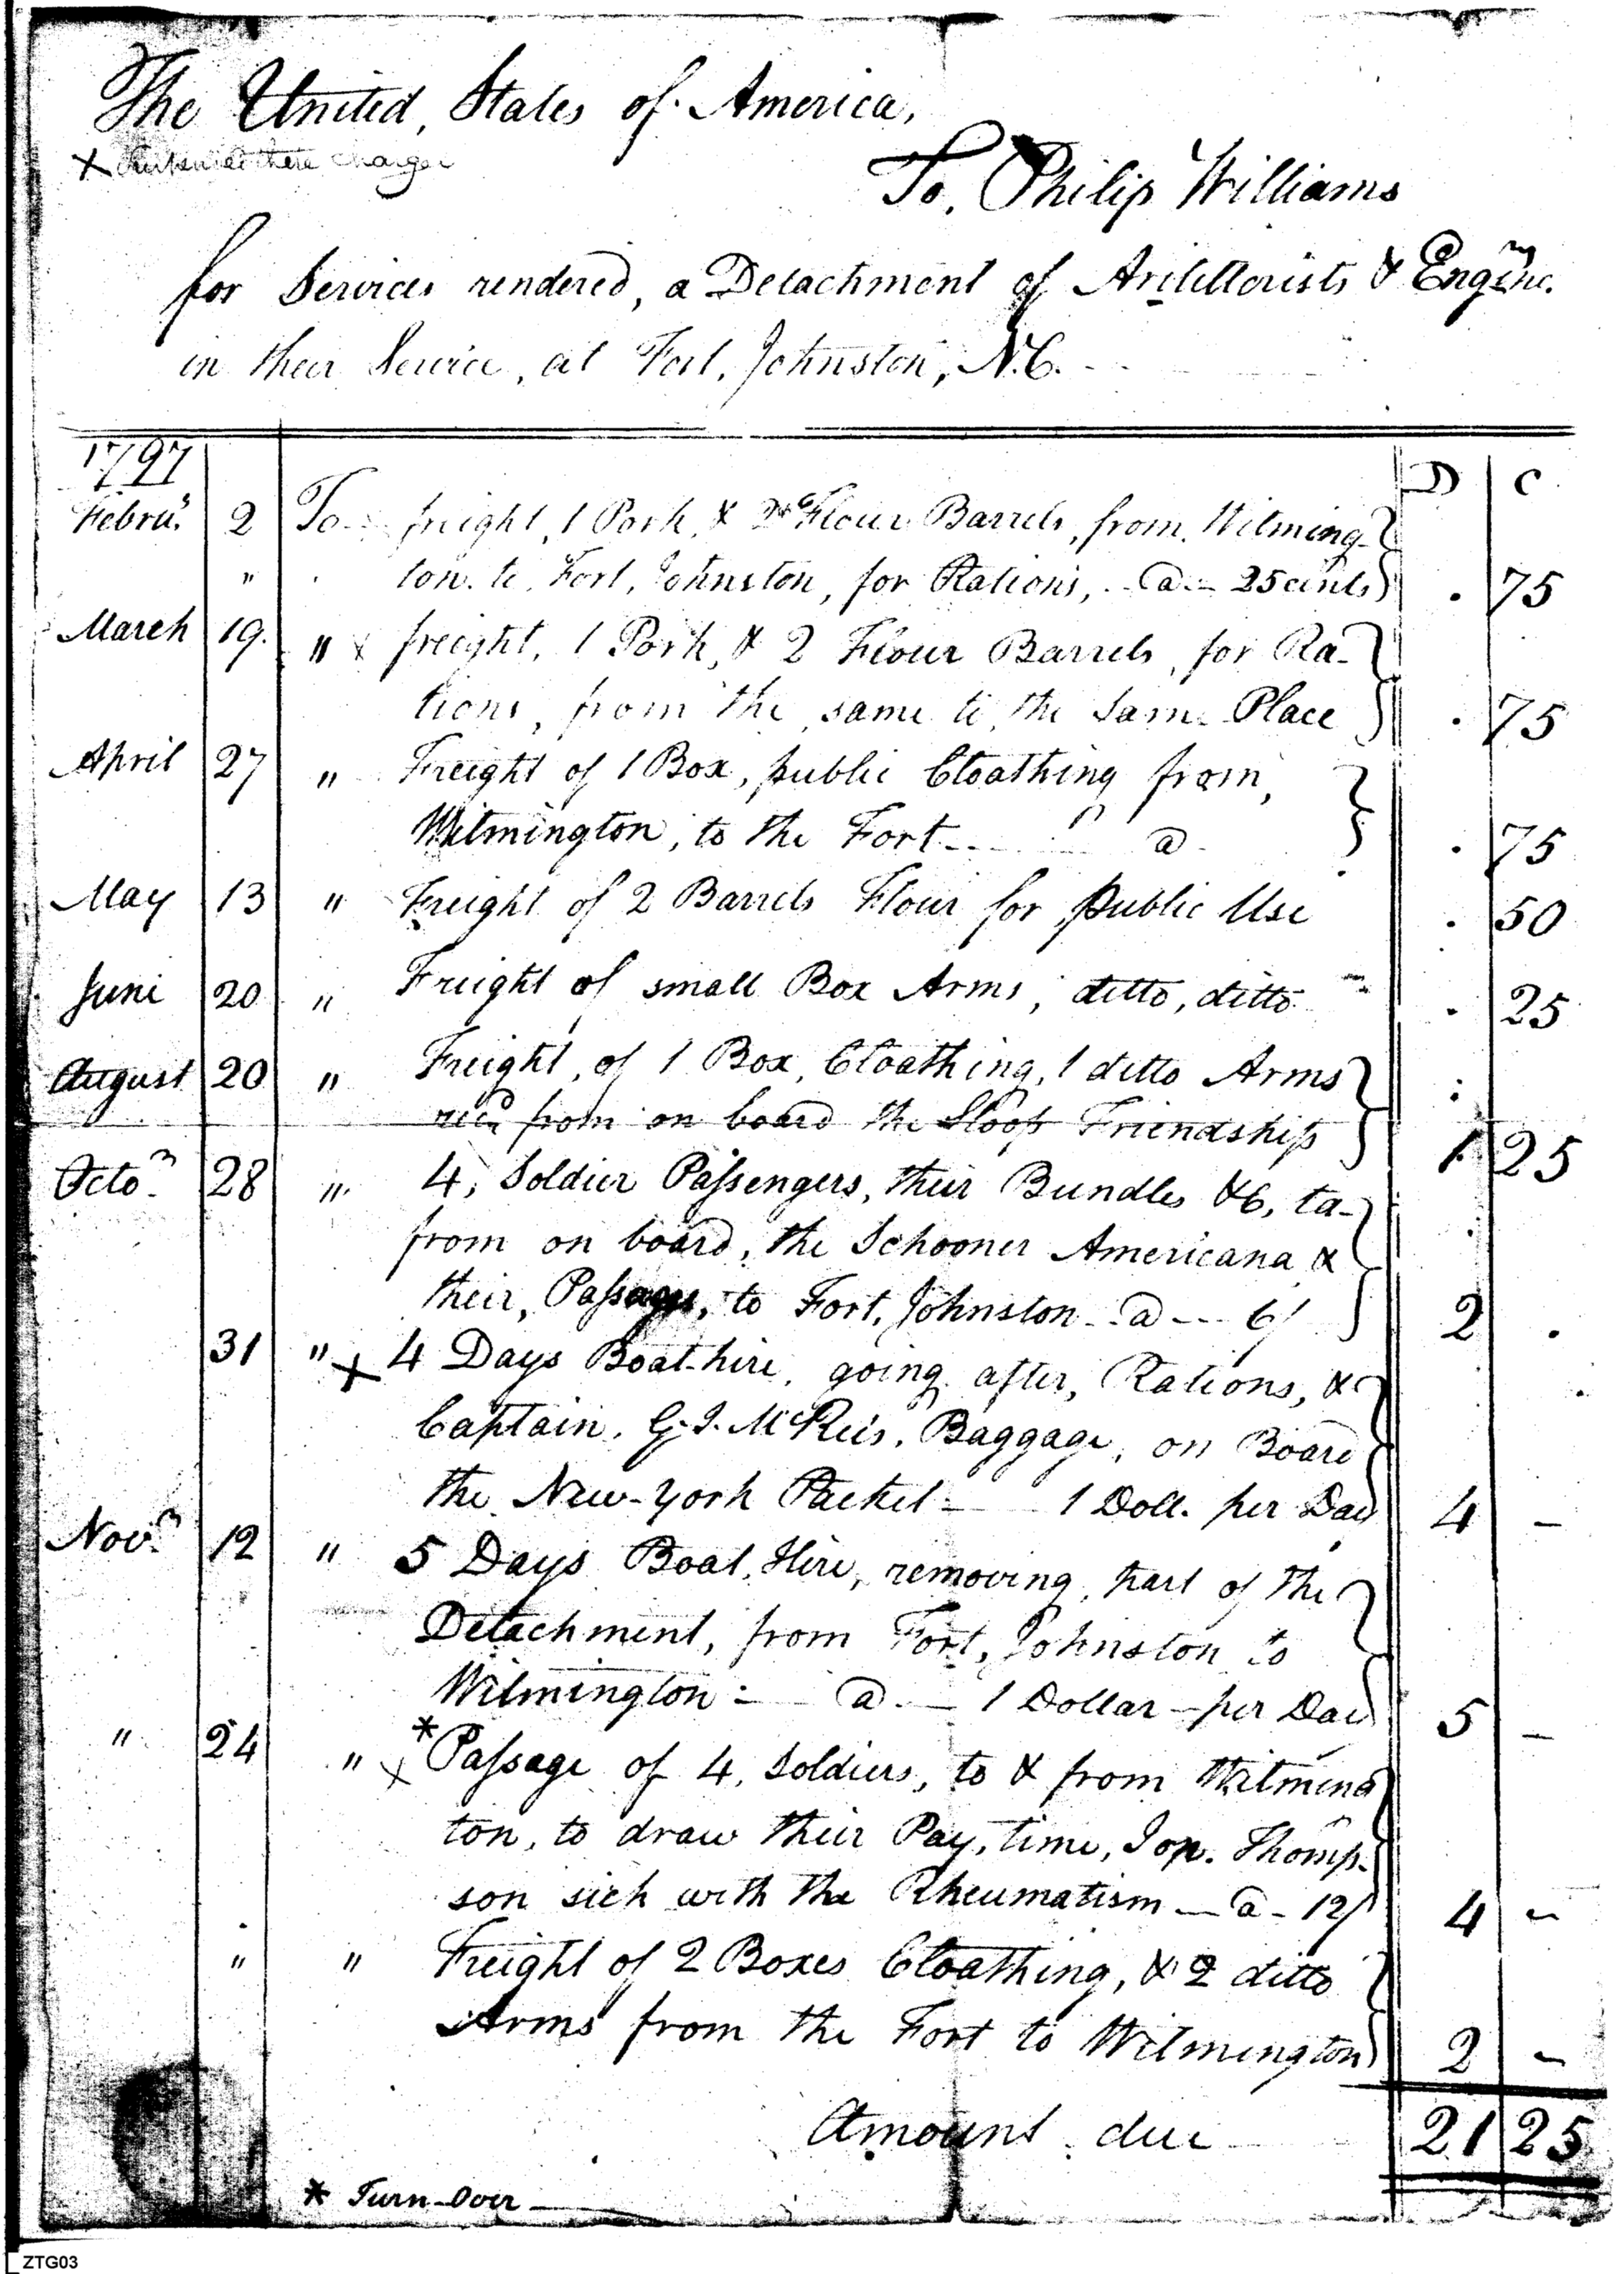 The United States of America,
x these charges
To, Philip Williams
for Services rendered, a Detachment of Artillerists & Engines.
in their Service, at Fort, Johnston, N.C.
1797
D C
Febru.y 2 To freight, 1 Pork, & 2 Flour Barrels, from, Wilming-
" ton. to Fort, Johnston, for Rations, @ 25 cents . 75
March 19. " x freight, 1 Pork, & 2 Flour Barrels, for Ra-
tions, from the same to the same Place . 75
April 27 " Freight of 1 Box, public Cloathing from,
Wilmington, to the Fort @ . 75
May 13 " Freight of 2 Barrels Flour for public Use . 50
June 20 " Freight of small Box Arms, ditto, ditto . 25
August 20 " Freight, of 1 Box, Cloathing, 1 ditto Arms
recd from on board the Sloop Friendship 1 25
Octo.r 28 " 4, Soldier Passengers, their Bundles &c, ta-
from on board, the Schooner Americana &
their, Passage, to Fort, Johnston @ 6/ 2 .
31 " x 4 Days Boat-hire, going after, Rations, &
Captain, G. J. McRee's, Baggage, on Board
the New-York Packet 1 Doll. per Day 4 –
Nov.r 12 " 5 Days Boat, Hire, removing, part of the
Detachment, from Fort, Johnston to
Wilmington @ 1 Dollar per Day 5 –
" 24 " x * Passage of 4, Soldiers, to & from Wilming
ton, to draw their Pay, time, Thomp-
son sick with the Rheumatism @ 12/ 4 –
" " Freight of 2 Boxes Cloathing, & 2 ditto
Arms from the Fort to Wilmington 2 –
Amount due 21 25
* Turn-Over
ZTG03